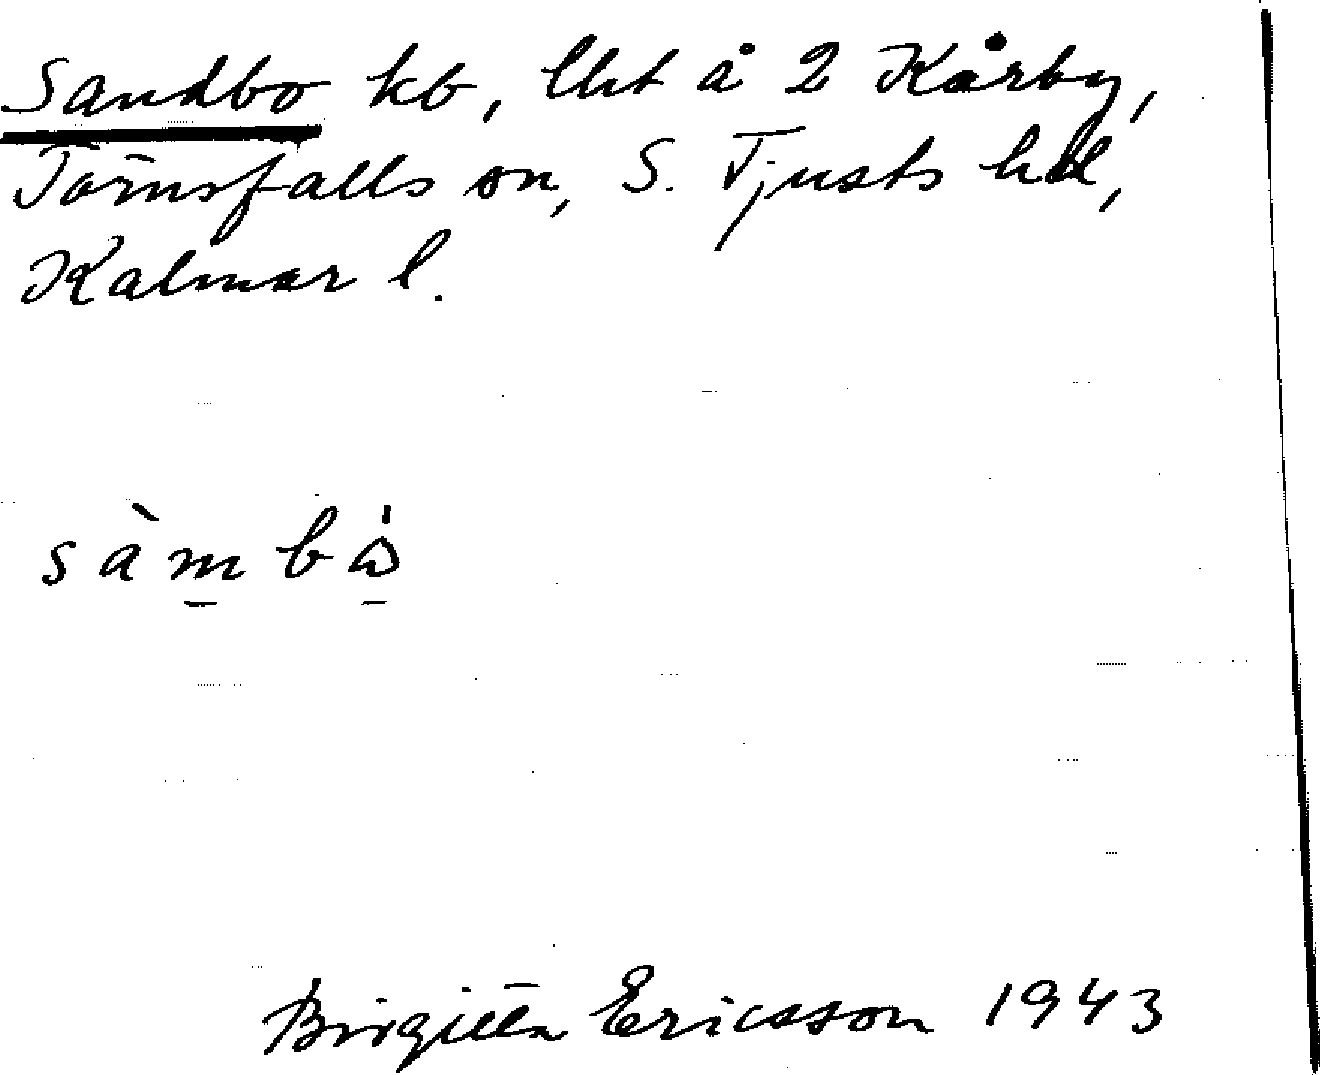 Sandbo kb, lht å 2 Kårby,
Törnsfalls sn, S. Tjusts hd,
Kalmar l.
sàmbå̀
Birgitta Ericsson 1943